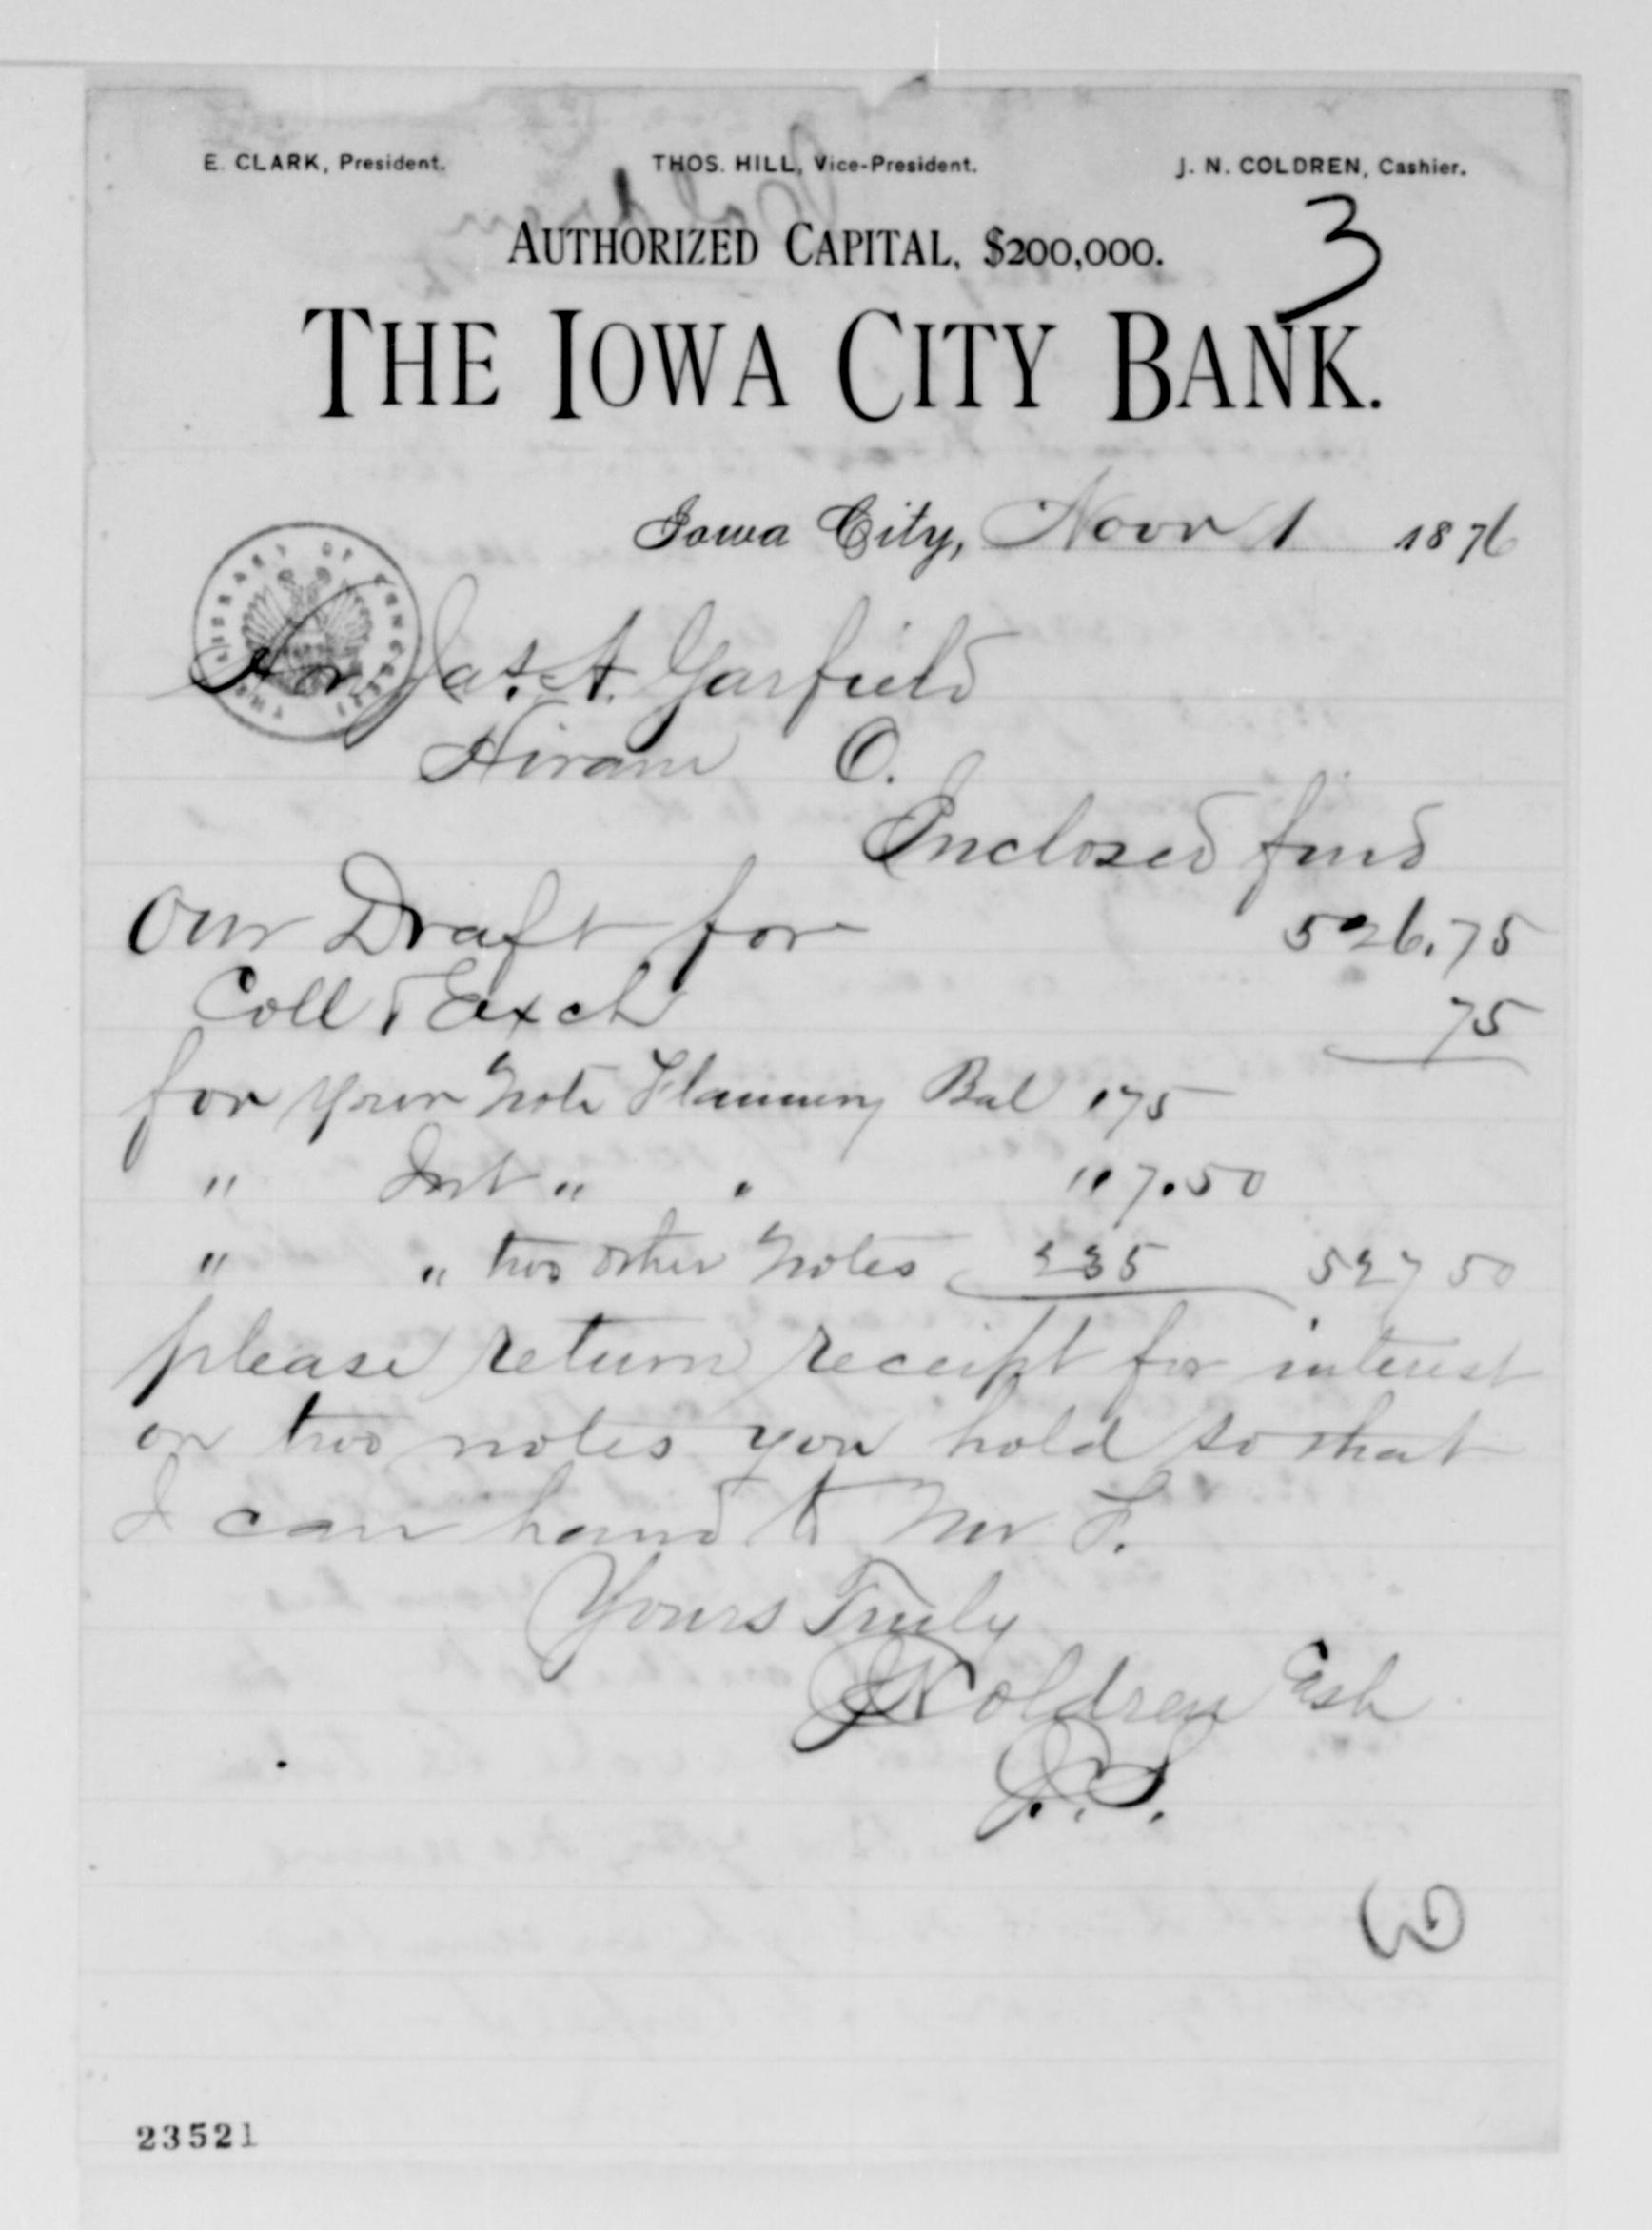 E. CLARK, President. THOS. HILL, Vice-President. J. N. COLDREN, Cashier.
3
AUTHORIZED CAPITAL, $200,000.
THE IOWA CITY BANK.
Iowa City, Novr 1 1876
THE LIBRARY OF CONGRESS
Hon Jas. A. Garfield
Hiram O.
Enclosed find
Our Draft for 526.75
Coll & Exch 75
for your Note Bal 175
" Int " " 117.50
" " two other Notes 235 527 50
please return receipt for interest
on two notes you hold so that
I can hand to Mr F.
Yours Truly
JNColdren Cash
23521